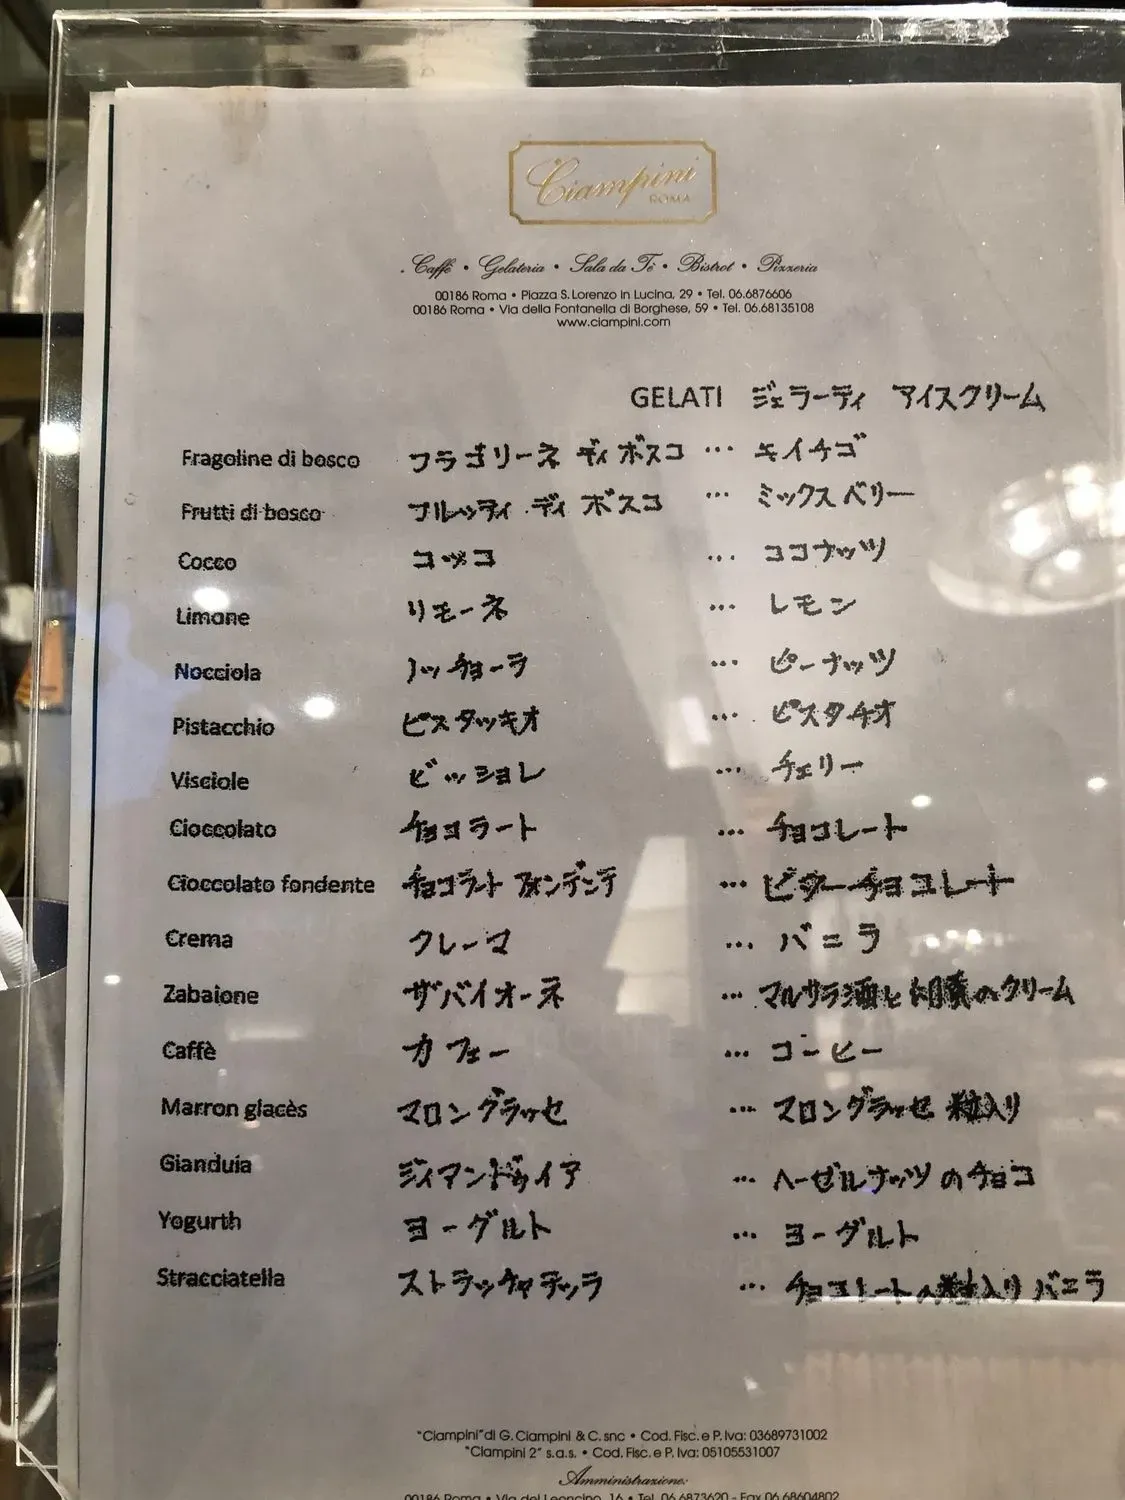 Ciampini
ROMA
Caffè • Gelateria • Sala da Tè • Bistrot • Pizzeria
00186 Roma • Piazza S. Lorenzo in Lucina, 29 • Tel. 06.6876606
00186 Roma • Via della Fontanella di Borghese, 59 • Tel. 06.68135108
www.ciampini.com
GELATI ジェラーティ アイスクリーム
Fragoline di bosco フラゴリーネ ディ ボスコ ... キイチゴ
Frutti di bosco フルッティ ディ ボスコ ... ミックスベリー
Cocco コッコ ... ココナッツ
Limone リモーネ ... レモン
Nocciola ノッチョーラ ... ピーナッツ
Pistacchio ピスタッキオ ... ピスタチオ
Visciole ビッショレ ... チェリー
Cioccolato チョコラート ... チョコレート
Cioccolato fondente チョコラート フォンデンテ ... ビターチョコレート
Crema クレーマ ... バニラ
Zabaione ザバイオーネ ... マルサラ酒と卵黄のクリーム
Caffè カフェー ... コーヒー
Marron glacès マロングラッセ ... マロングラッセ 粒入り
Gianduia ジィアンドゥイア ... ヘーゼルナッツのチョコ
Yogurth ヨーグルト ... ヨーグルト
Stracciatella ストラッチャテッラ ... チョコレートの粒入りバニラ
"Ciampini" di G. Ciampini & C. snc • Cod. Fisc. e P. Iva: 03689731002
"Ciampini 2" s.a.s. • Cod. Fisc. e P. Iva: 05105531007
Amministrazione:
00186 Roma • Via del Leoncino, 16 • Tel. 06.6873620 - Fax 06.68604802